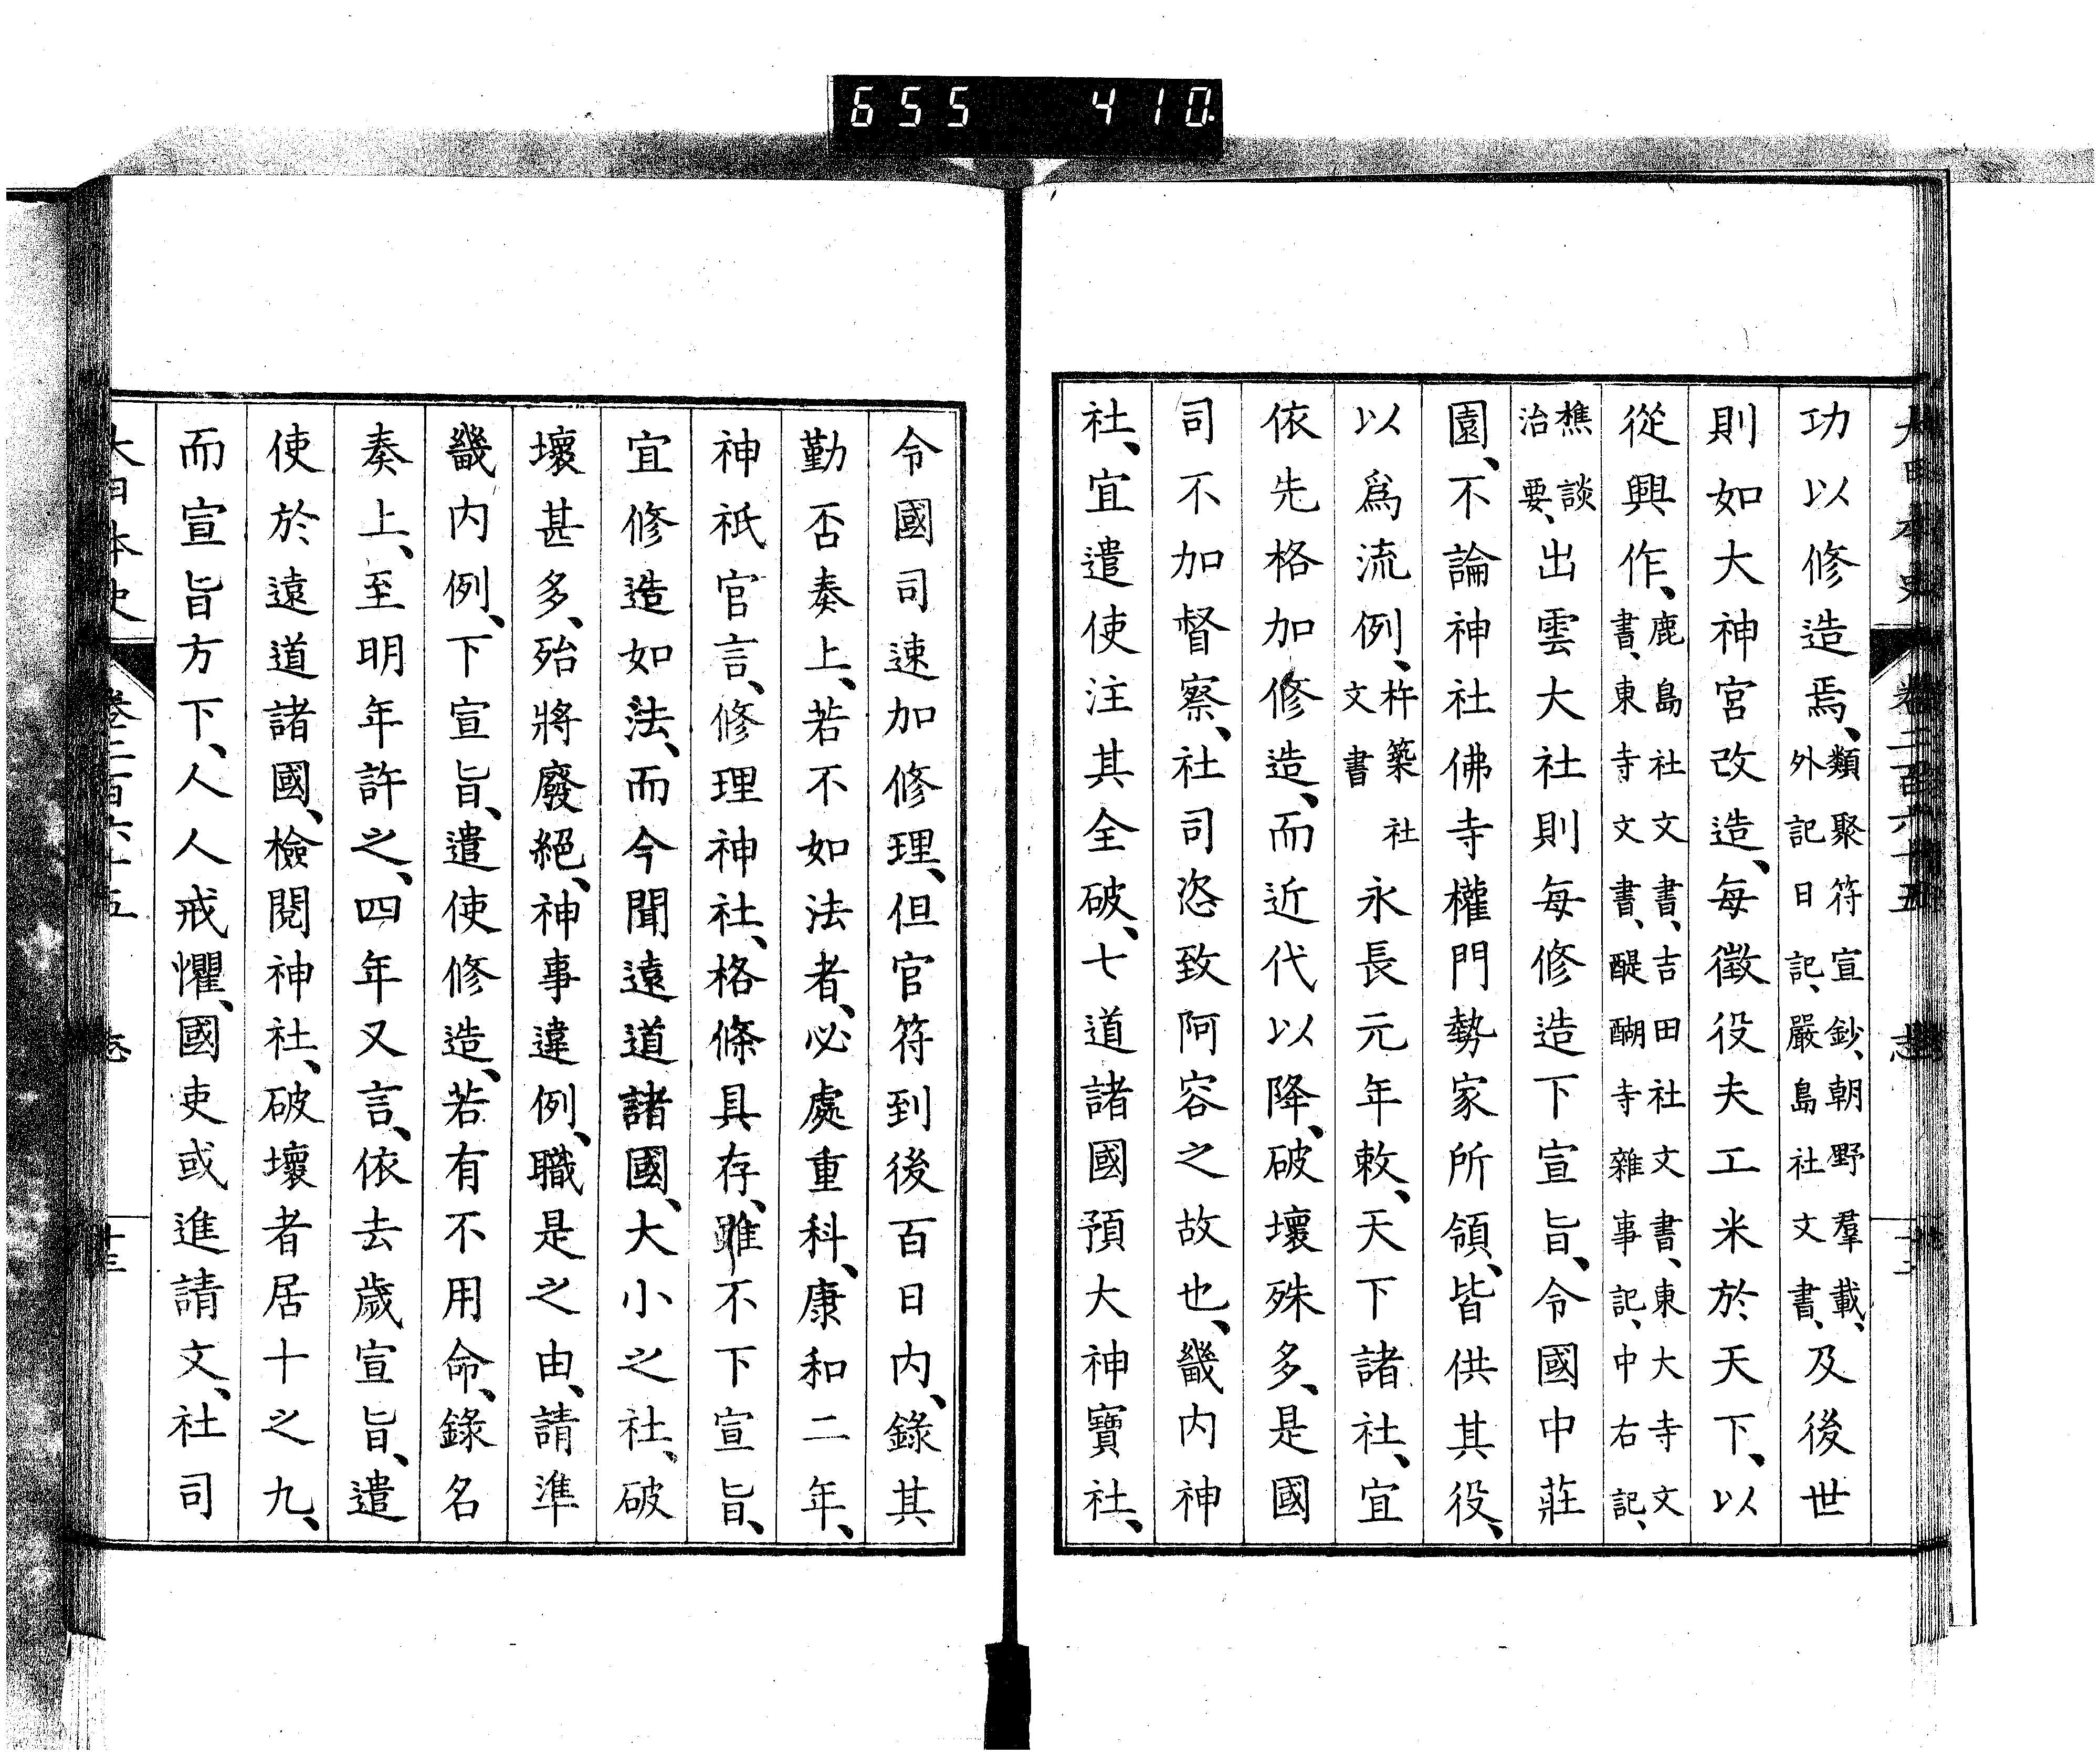 655 410
功以修造焉、類聚符宣鈔、朝野羣載、外記日記、嚴島社文書、及後世
則如大神宮改造、每徵役夫工米於天下、以
從興作、鹿島社文書、吉田社文書、東大寺文書、東寺文書、醍醐寺雜事記、中右記、
樵談治要、出雲大社則每修造下宣旨、令國中莊
園、不論神社佛寺權門勢家所領、皆供其役、
以爲流例、杵築社文書永長元年敕、天下諸社、宜
依先格加修造、而近代以降、破壞殊多、是國
司不加督察、社司恣致阿容之故也、畿内神
社、宜遣使注其全破、七道諸國預大神寶社、
令國司速加修理、但官符到後百日内、錄其
勤否奏上、若不如法者、必處重科、康和二年、
神祇官言、修理神社、格條具存、雖不下宣旨、
宜修造如法、而今聞遠道諸國、大小之社、破
壞甚多、殆將廢絕、神事違例、職是之由、請準
畿内例、下宣旨、遣使修造、若有不用命、錄名
奏上、至明年許之、四年又言、依去歲宣旨、遣
使於遠道諸國、檢閱神社、破壞者居十之九、
而宣旨方下、人人戒懼、國吏或進請文、社司
大日本史 卷三百六十五 志 十三